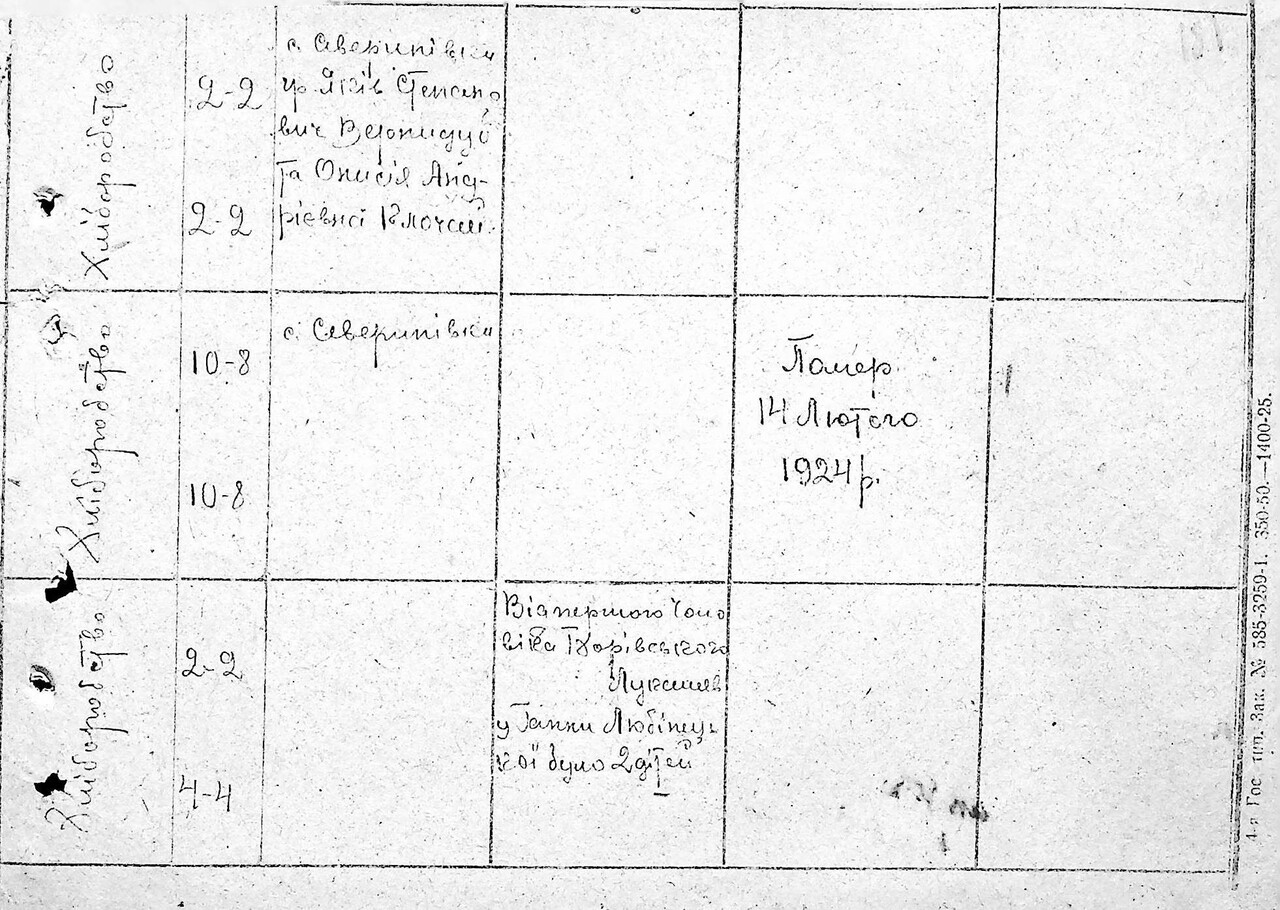 Хліборобство
2-2
2-2
с. Северинівка
гр. Яків Степано
вич Вернидуб
та Онисія Анд-
рієвна Клочай.
Хліборобство
10-8
10-8
с. Северинівка
Помер
14 Лютого
1924 р.
Хліборобство
2-2
4-4
Від першого Чоло
віка
у Ганки Любінец-
кої було 2 дітей
4-я Гос. тип. Зак. № 585-3259-1. 350-50.—1400-25.